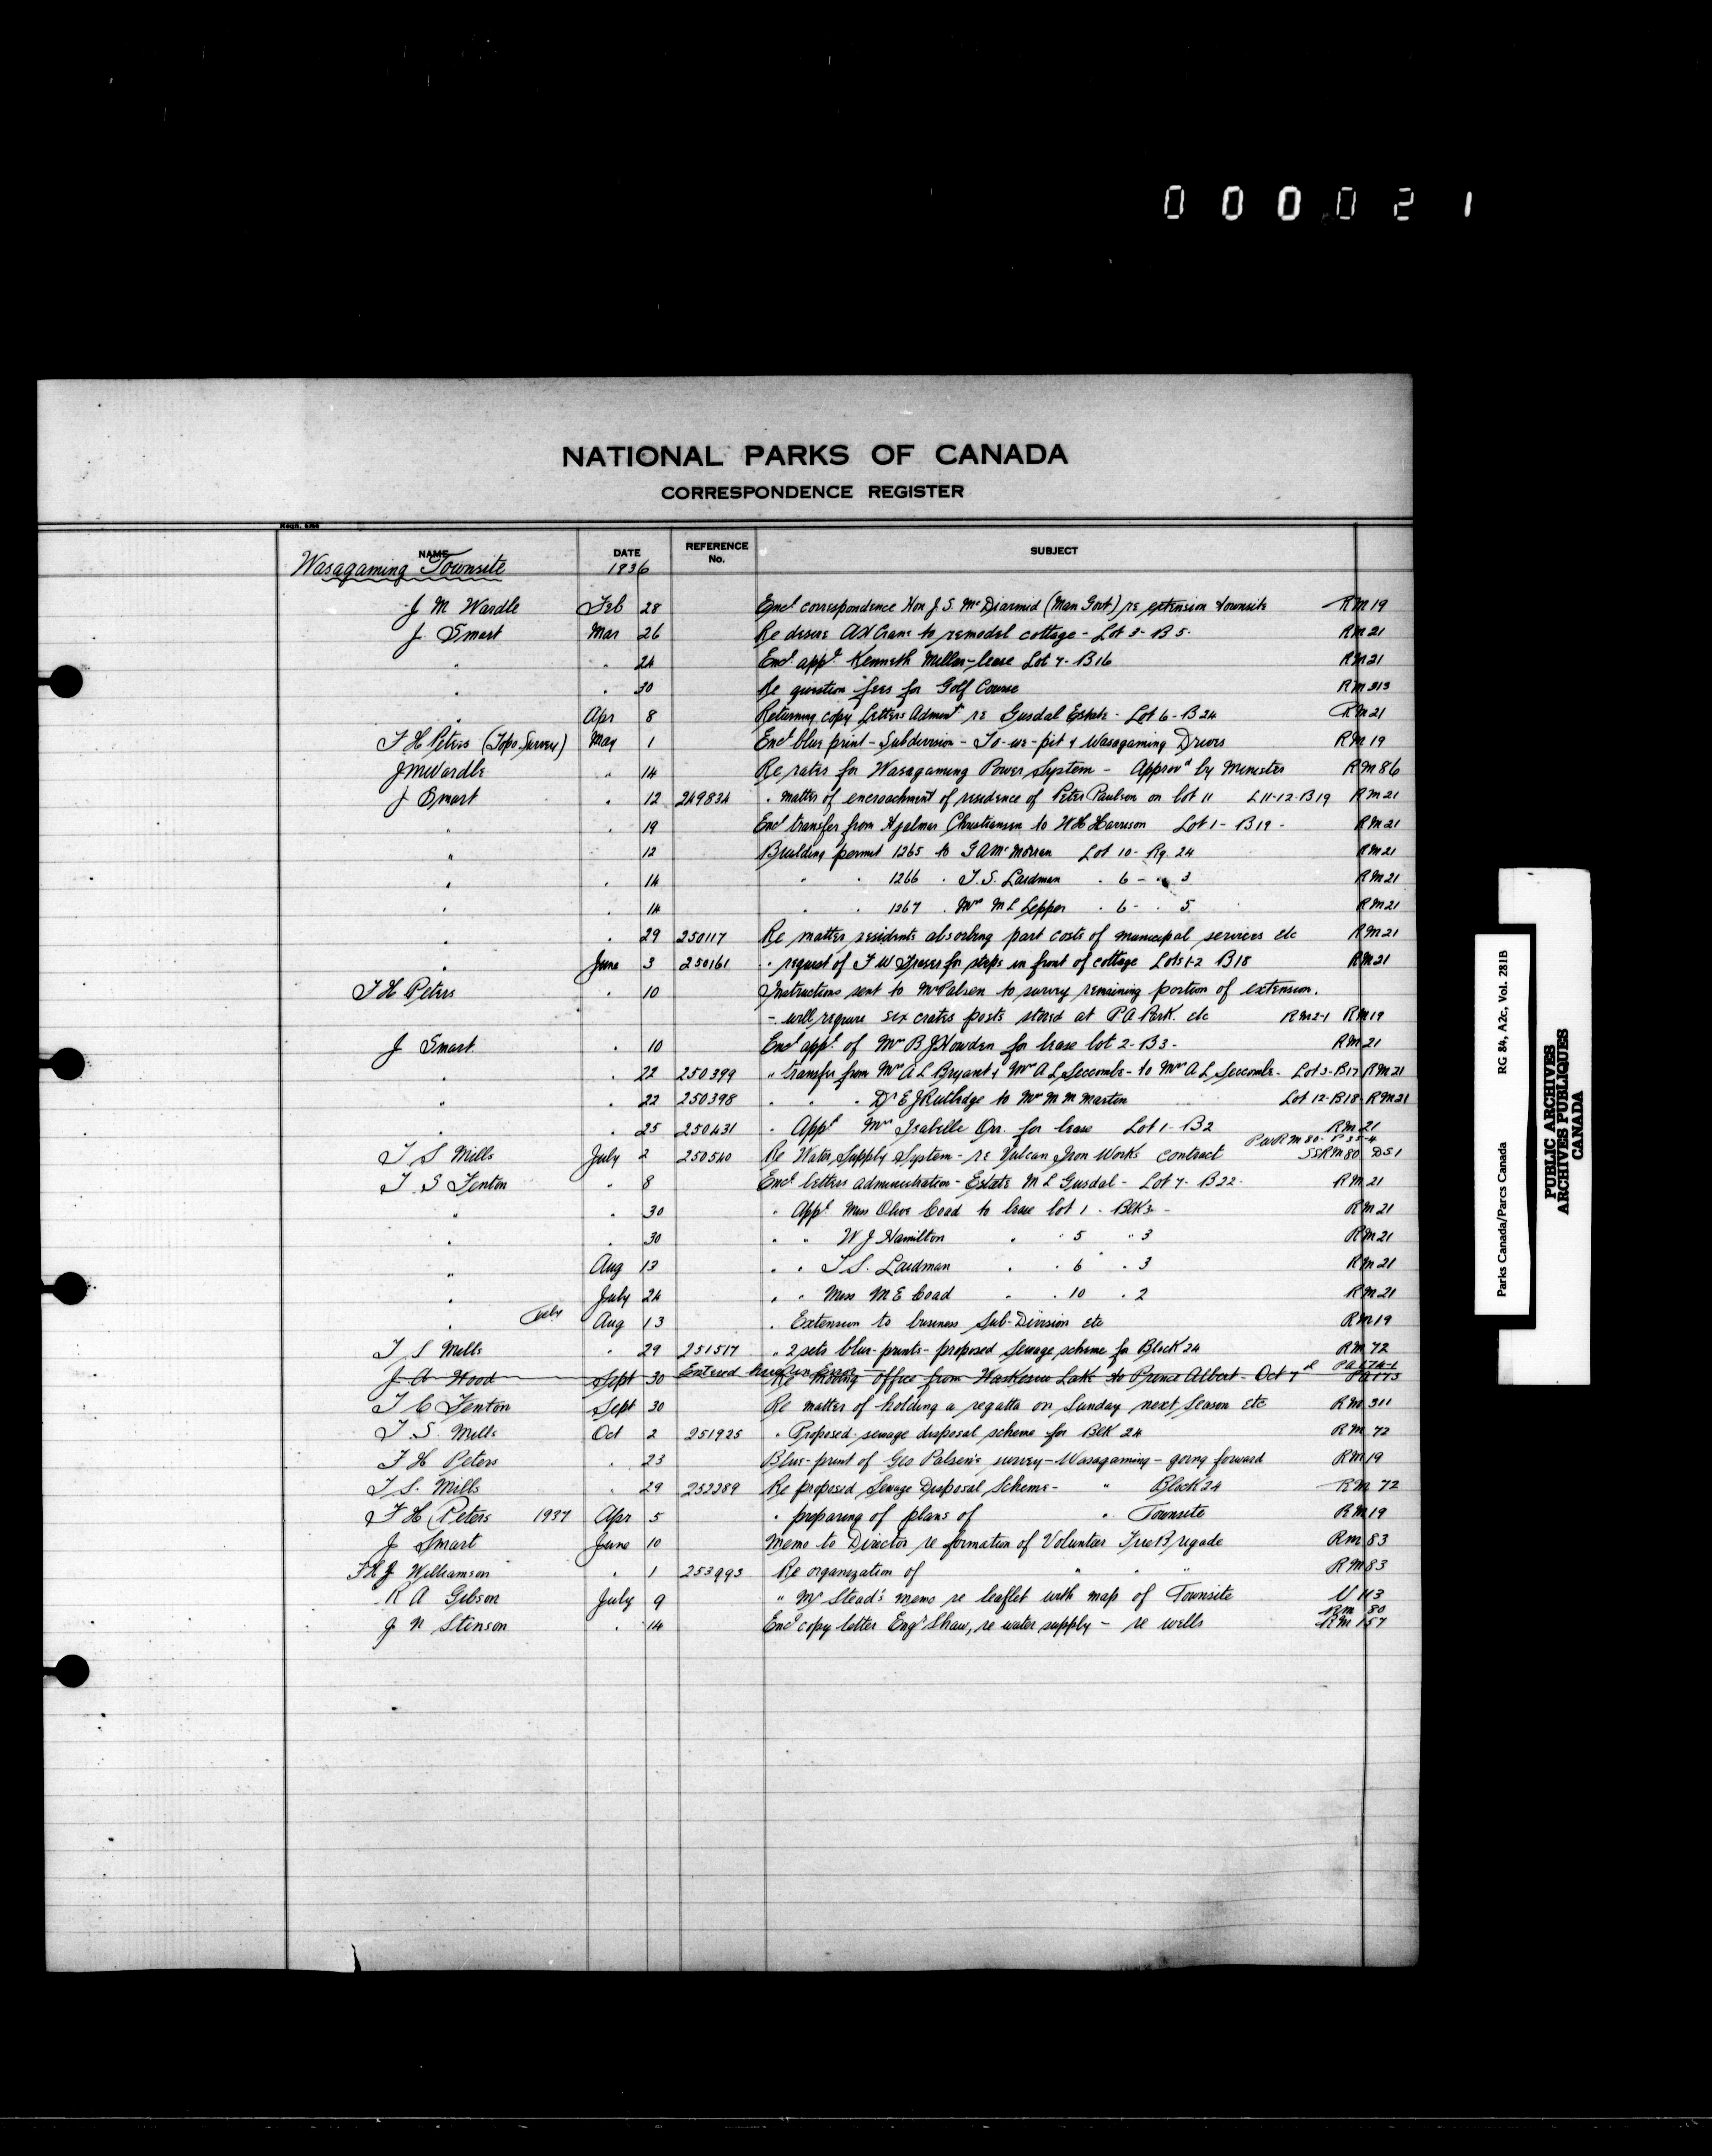 000021
NATIONAL PARKS OF CANADA
CORRESPONDENCE REGISTER
NAME DATE REFERENCE No. SUBJECT
Wasagaming Townsite 1936
J M Wardle Feb 28 Encl correspondence Hon J. S. McDiarmid (Man Govt) re extension townsite RM 19
J Smart Mar 26 Re desire A H Crane to remodel cottage - Lot 3 - B 5 - RM 21
" " 24 Encl. appl. Kenneth Miller - lease Lot 7 - B16 RM 21
" " 30 Re question fees for Golf Course RM 313
" Apr 8 Returning copy Letters Admint re Gusdal Estate - Lot 6 - B24 RM 21
F H Peters (Topo. Survey) May 1 Encl blue print - Subdivision - Ta-wa-pit & Wasagaming Drives RM 19
J M Wardle " 14 Re rates for Wasagaming Power System - Approvd by Minister RM 86
J Smart " 12 249834 " matter of encroachment of residence of Peter Paulson on lot 11 L 11-12-B19 RM 21
" " 19 Encl transfer from Hjalmar Christiansen to W H Harrison Lot 1 - B19 - RM 21
" 12 Building permit 1265 to G A McMorran Lot 10 - Rg. 24 RM 21
" " 14 " " 1266 " T. S. Laidman " 6 - " 3 RM 21
" " 14 " " 1267 " Mrs M L Lepper " 6 - " 5 RM 21
" " 29 250117 Re matter residents absorbing part costs of municipal services etc RM 21
" June 3 250161 " request of F W Fraser for steps in front of cottage Lots 1-2 B18 RM 21
F H Peters " 10 Instructions sent to Mr Palsen to survey remaining portion of extension.
- will require six crates posts stored at P A Park. etc RM 2-1 RM 19
J Smart " 10 Encl appl. of Mr B J Howden for lease lot 2 - B3 - RM 21
" " 22 250399 " transfer from Mr A L Bryant & Mr A L Seccombe - to Mrs A L Seccombe - Lot 3 - B17 RM 21
" " 22 250398 " " " Dr E J Rutledge to Mrs M M Marten Lot 12 - B18 - RM 21
" 25 250431 " Appl Mrs Isabelle Orr. for lease Lot 1 - B2 RM 21
T S Mills July 2 250540 Re Water Supply System - re Vulcan Iron Works contract SSRM 80 D51
T S Fenton " 8 Encl letters administration - Estate M L Gusdal - Lot 7 - B22 - RM 21
" " 30 " Appl Miss Olive Coad to lease lot 1 - Blk 3 - RM 21
" " 30 " " W J Hamilton " " 5 " 3 RM 21
" Aug 13 " " T S. Laidman " " 6 " 3 RM 21
" July 24 " " Miss M E Coad " " 10 " 2 RM 21
" July Aug 13 " Extension to business Sub-Division etc RM 19
T S Mills " 29 251517 " 2 sets blue-prints - proposed sewage scheme for Block 24 RM 72
J A Wood Sept 30 Entered here in Error Re moving office from Waskesiu Lake to Prince Albert - Oct 7 PA 174-1
T C Fenton Sept 30 Re matter of holding a regatta on Sunday next season etc RM 311
T S. Mills Oct 2 251925 " Proposed sewage disposal scheme for Blk 24 RM 72
F H Peters " 23 Blue-print of Geo Palsen's survey - Wasagaming - going forward RM 19
T S. Mills " 29 252289 Re proposed Sewage Disposal Scheme - " Block 24 RM 72
F H Peters 1937 Apr 5 " preparing of plans of " Townsite RM 19
J Smart June 10 Memo to Director re formation of Volunteer Fire Brigade RM 83
F H J Williamson " 1 253993 Re organization of " " " RM 83
R A Gibson July 9 " Mr Stead's memo re leaflet with map of Townsite U 113
J N Stinson " 14 Encl copy letter Engr Shaw, re water supply - re wells RM 80 RM 157
Parks Canada/Parcs Canada RG 84, A2c, Vol. 281B
PUBLIC ARCHIVES
ARCHIVES PUBLIQUES
CANADA